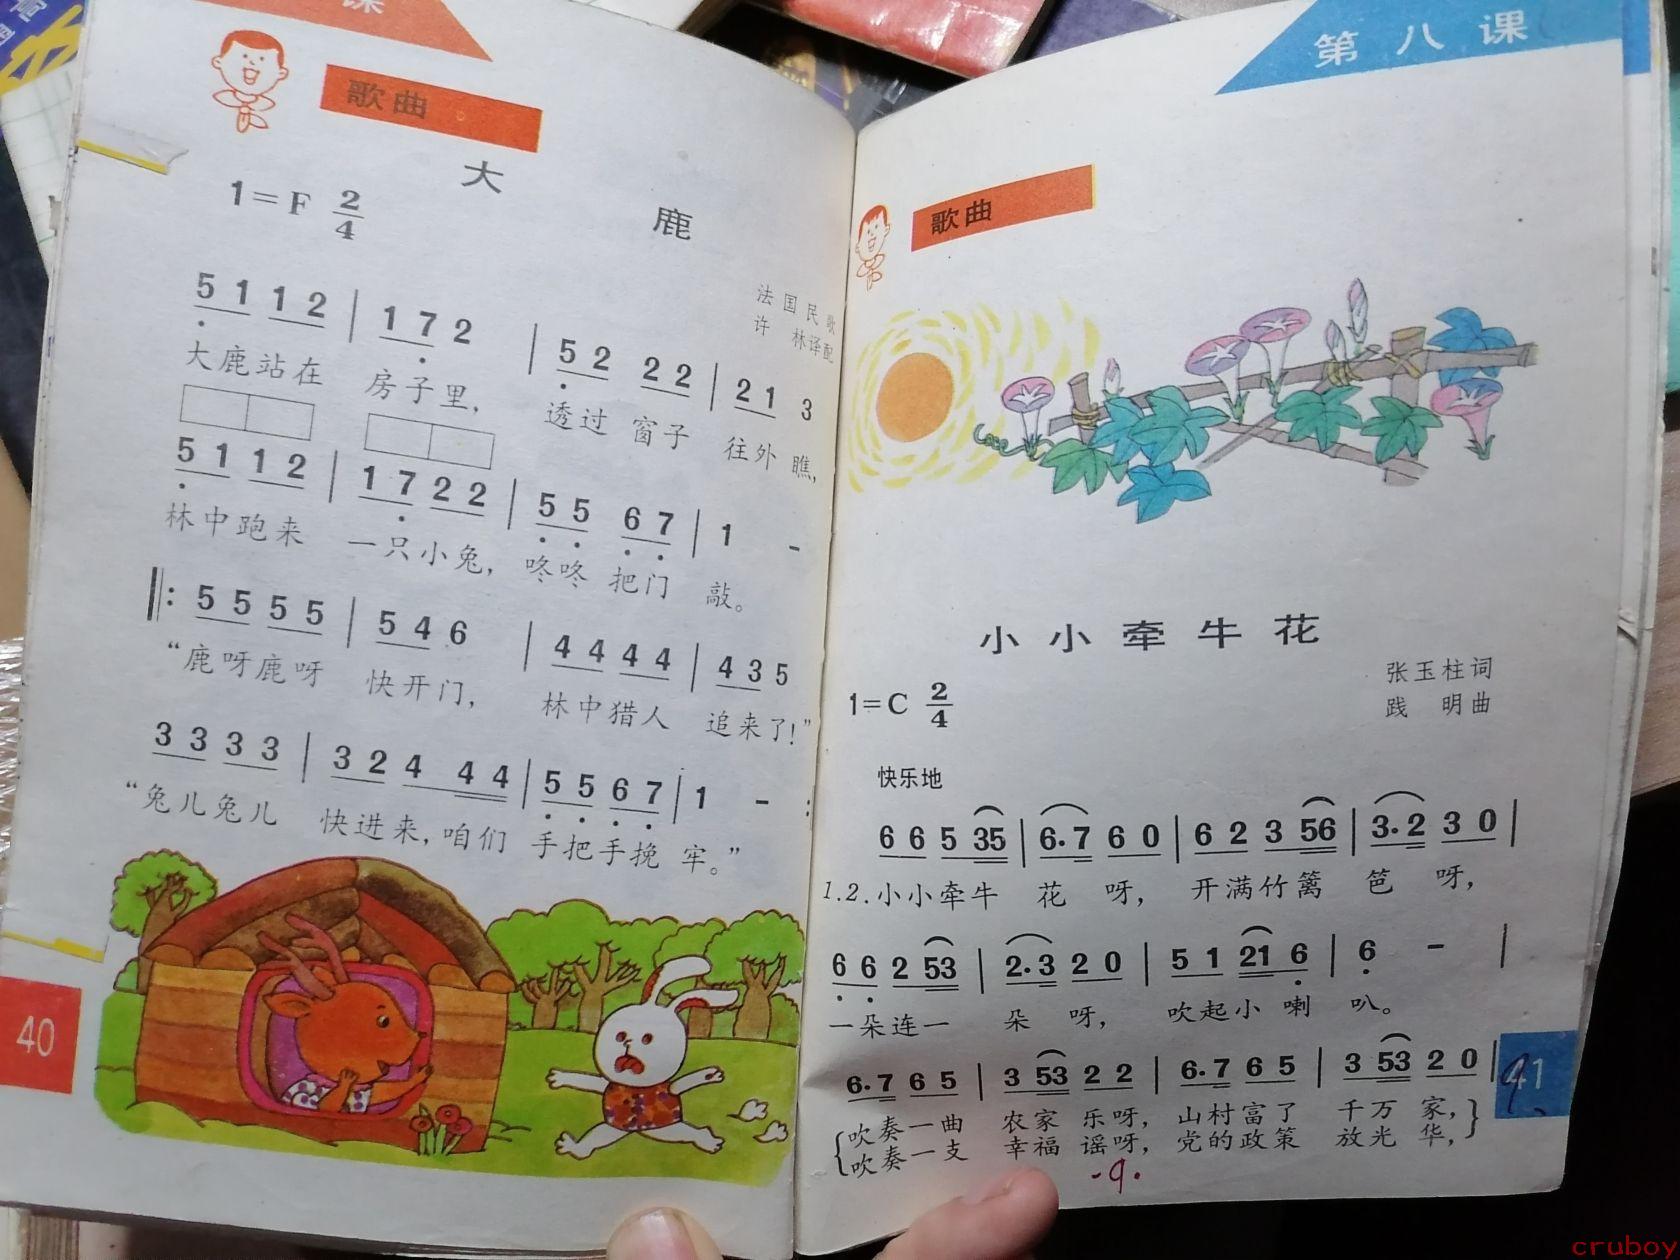 课
歌曲
大鹿
1=F 2/4
法国民歌
许 林译配
5 1 1 2 | 1 7 2 | 5 2 2 2 | 2 1 3
大鹿站在 房子里， 透过 窗子 往外 瞧，
5 1 1 2 | 1 7 2 2 | 5 5 6 7 | 1 -
林中跑来 一只小兔， 咚咚 把门 敲。
‖: 5 5 5 5 | 5 4 6 | 4 4 4 4 | 4 3 5
“鹿呀鹿呀 快开门， 林中猎人 追来了！”
3 3 3 3 | 3 2 4 4 4 | 5 5 6 7 | 1 - :
“兔儿兔儿 快进来，咱们 手把手挽 牢。”
40
第八课
歌曲
小小牵牛花
张玉柱词
践 明曲
1=C 2/4
快乐地
6 6 5 35 | 6·7 6 0 | 6 2 3 56 | 3·2 3 0 |
1.2.小小牵牛 花 呀， 开满竹篱 笆 呀，
6 6 2 53 | 2·3 2 0 | 5 1 21 6 | 6 - |
一朵连一 朵 呀， 吹起小喇 叭。
6·7 6 5 | 3 53 2 2 | 6·7 6 5 | 3 53 2 0 |
吹奏一曲 农家 乐呀， 山村富了 千万 家，
吹奏一支 幸福 谣呀， 党的政策 放光 华，
41
·9·
cruboy